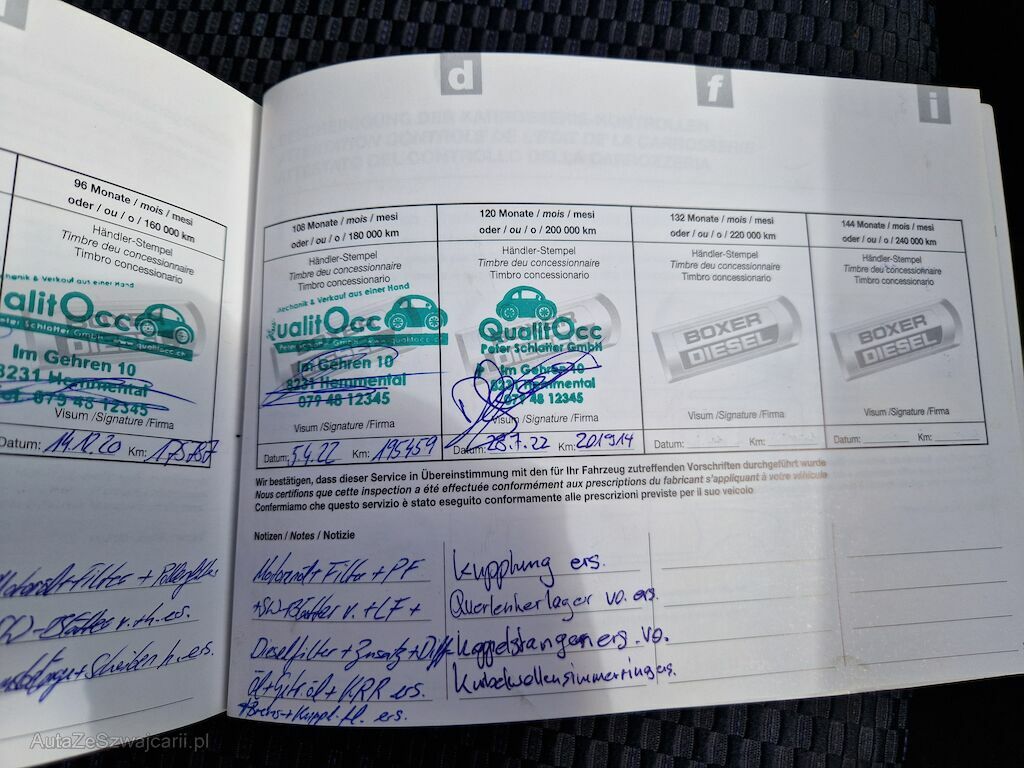 96 Monate / mois / mesi
oder / ou / o / 160 000 km
Händler-Stempel
Timbre deu concessionnaire
Timbro concessionario
& Verkauf aus einer Hand
QualitOcc
Peter Schlatter GmbH www.qualitocc.ch
Im Gehren 10
8231 Hemmental
079 48 12345
Visum /Signature /Firma
Datum: 14.12.20 Km: 175787
Motoroel + Filter + Pollenfilter
SW-Blätter v. + h. ers.
+ Scheiben h. ers.
d f i
BESCHEINIGUNG DER KAROSSERIE-KONTROLLEN
ATTESTATION CONTROLE DE L'ETAT DE LA CARROSSERIE
ATTESTATO DEL CONTROLLO DELLA CARROZZERIA
108 Monate / mois / mesi
oder / ou / o / 180 000 km
Händler-Stempel
Timbre deu concessionnaire
Timbro concessionario
Mechanik & Verkauf aus einer Hand
QualitOcc
Peter Schlatter GmbH www.qualitocc.ch
Im Gehren 10
8231 Hemmental
079 48 12345
Visum /Signature /Firma
Datum: 5.4.22 Km: 195459
120 Monate / mois / mesi
oder / ou / o / 200 000 km
Händler-Stempel
Timbre deu concessionnaire
Timbro concessionario
QualitOcc
Peter Schlatter GmbH
Im Gehren 10
8231 Hemmental
079 48 12345
Visum /Signature /Firma
Datum: 28.7.22 Km: 201914
132 Monate / mois / mesi
oder / ou / o / 220 000 km
Händler-Stempel
Timbre deu concessionnaire
Timbro concessionario
BOXER
DIESEL
Visum /Signature /Firma
Datum: Km:
144 Monate / mois / mesi
oder / ou / o / 240 000 km
Händler-Stempel
Timbre deu concessionnaire
Timbro concessionario
BOXER
DIESEL
Visum /Signature /Firma
Datum: Km:
Wir bestätigen, dass dieser Service in Übereinstimmung mit den für Ihr Fahrzeug zutreffenden Vorschriften durchgeführt wurde
Nous certifions que cette inspection a été effectuée conformément aux prescriptions du fabricant s'appliquant à votre véhicule
Confermiamo che questo servizio è stato eseguito conformamente alle prescrizioni previste per il suo veicolo
Notizen / Notes / Notizie
Motoroel + Filter + PF
+ SW-Blätter v. + LF +
Dieselfilter + Zusatz + Diff
Öl + Getr.öl + KRR ers.
+ Brems + Kuppl. fl. ers.
Kupplung ers.
Querlenkerlager vo. ers.
Koppelstangen ers. vo.
Kurbelwellensimmerring ers.
AutaZeSzwajcarii.pl